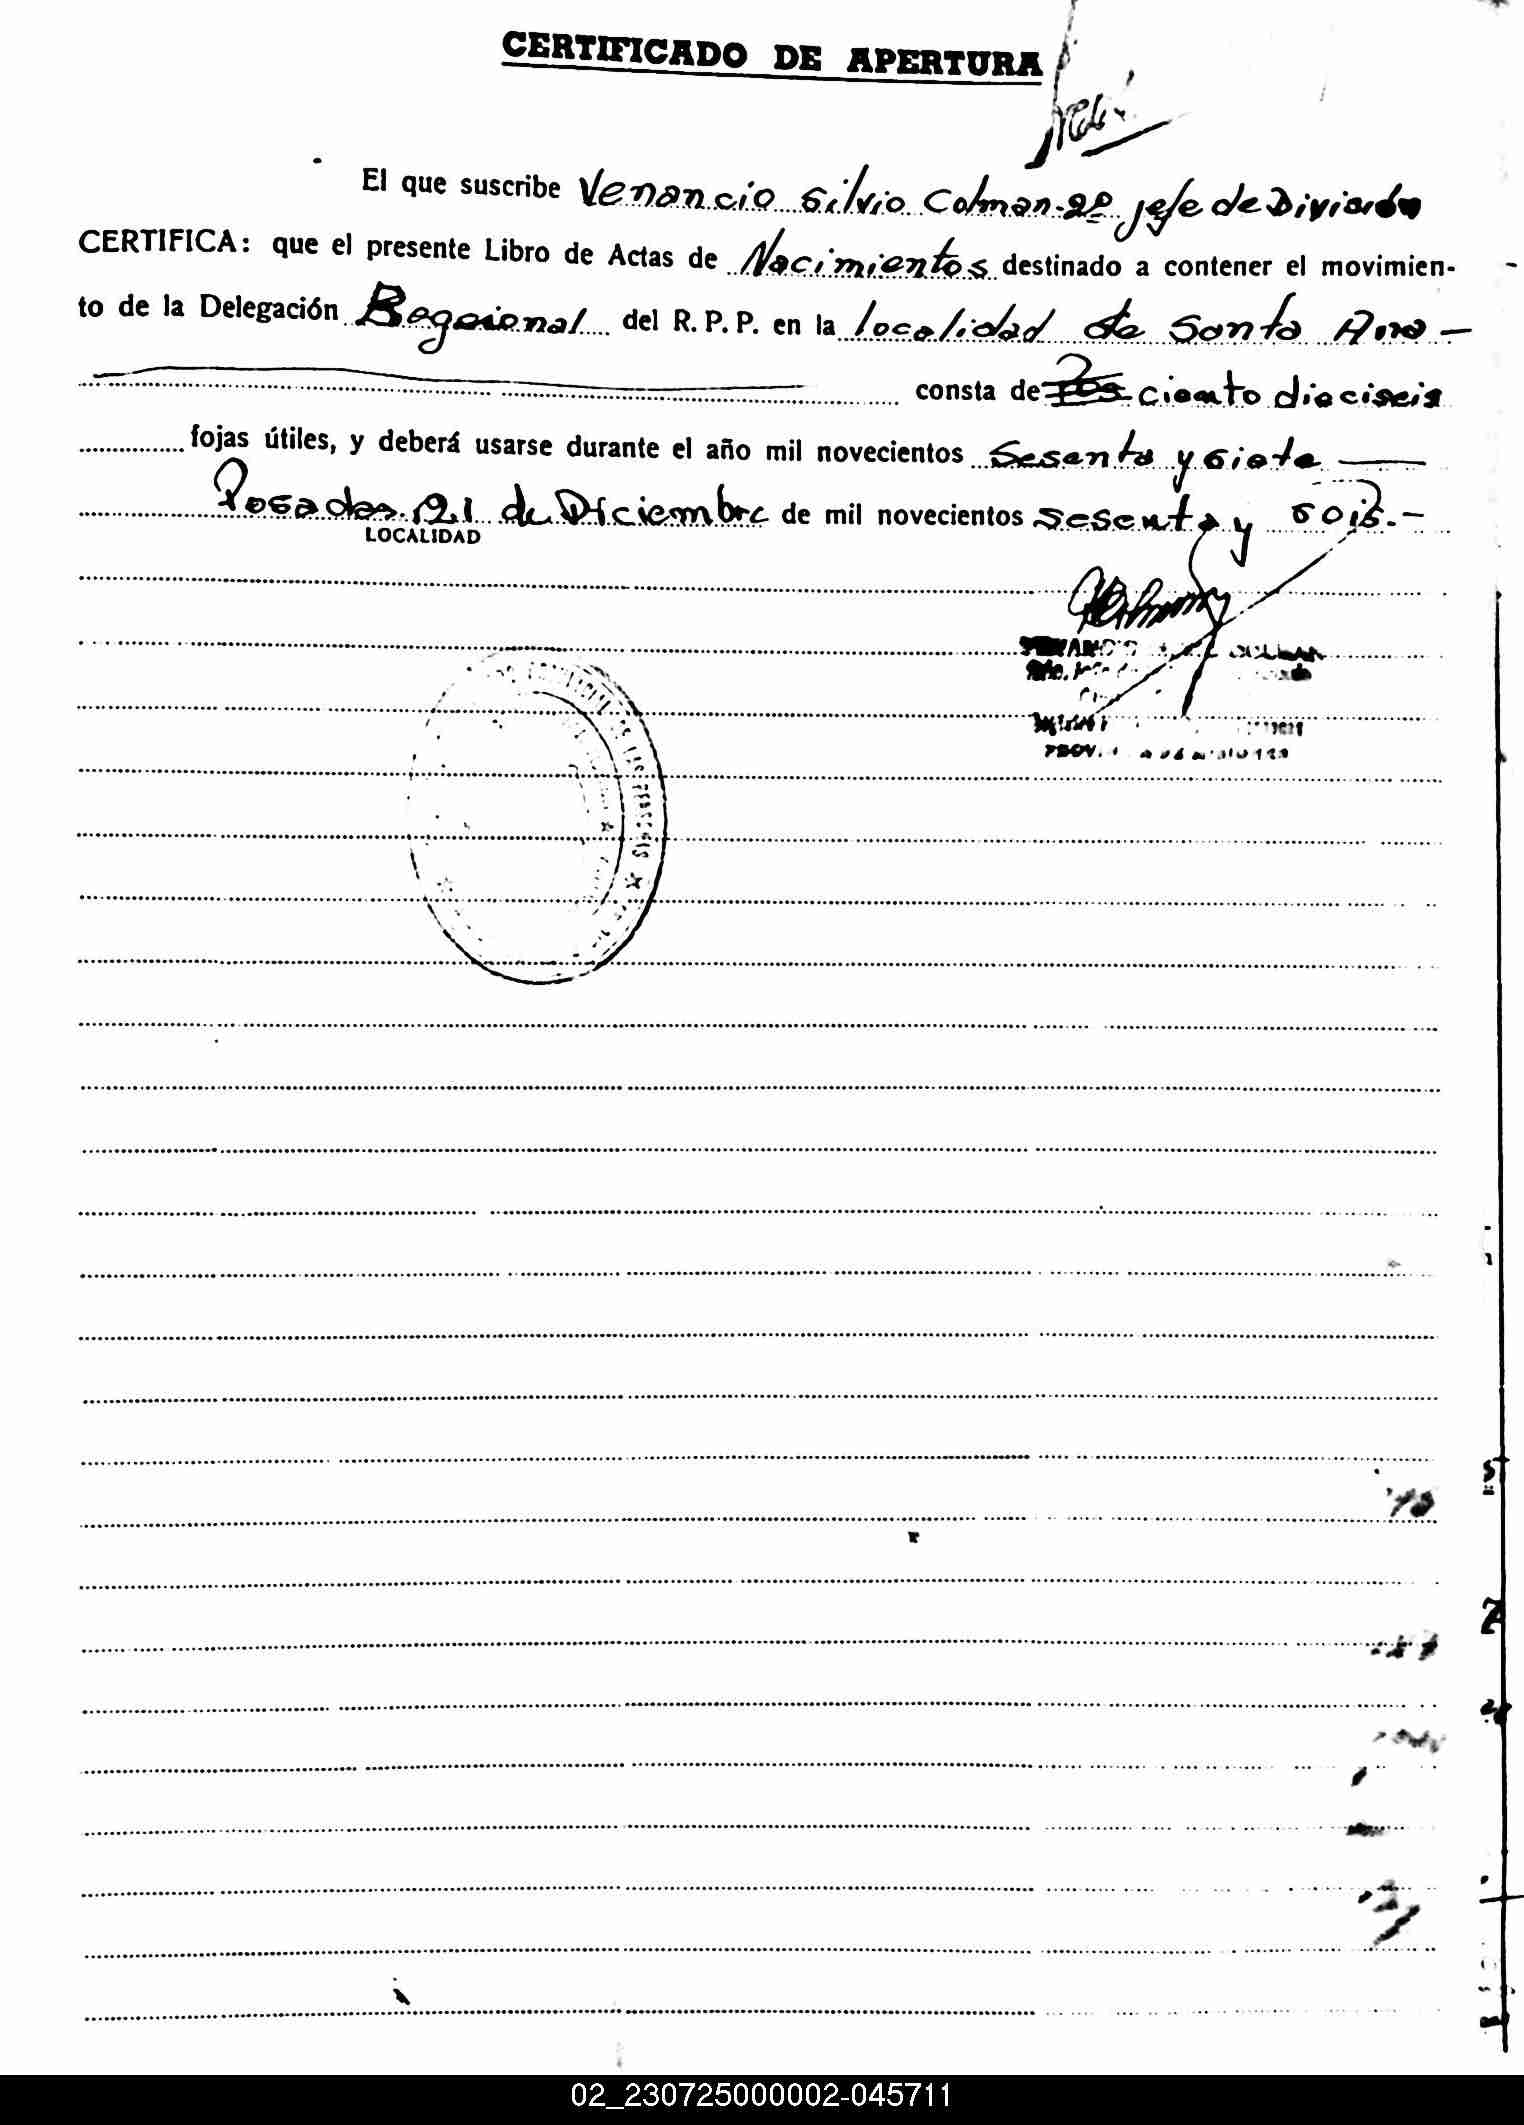 CERTIFICADO DE APERTURA
El que suscribe Venancio Silvio Colman 2º jefe de División
CERTIFICA: que el presente Libro de Actas de Nacimientos destinado a contener el movimien-
to de la Delegación Regional del R. P. P. en la localidad de Santa Ana —
consta de ciento dieciseis
fojas útiles, y deberá usarse durante el año mil novecientos sesenta y siete —
Posadas 21 de Diciembre de mil novecientos sesenta y seis.-
LOCALIDAD
02_230725000002-045711